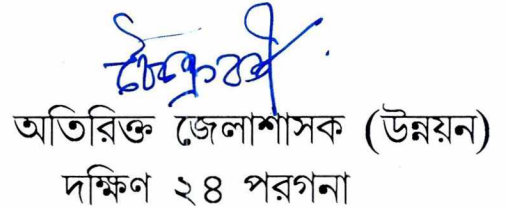 অতিরিক্ত জেলাশাসক (উন্নয়ন)
দক্ষিণ ২৪ পরগনা